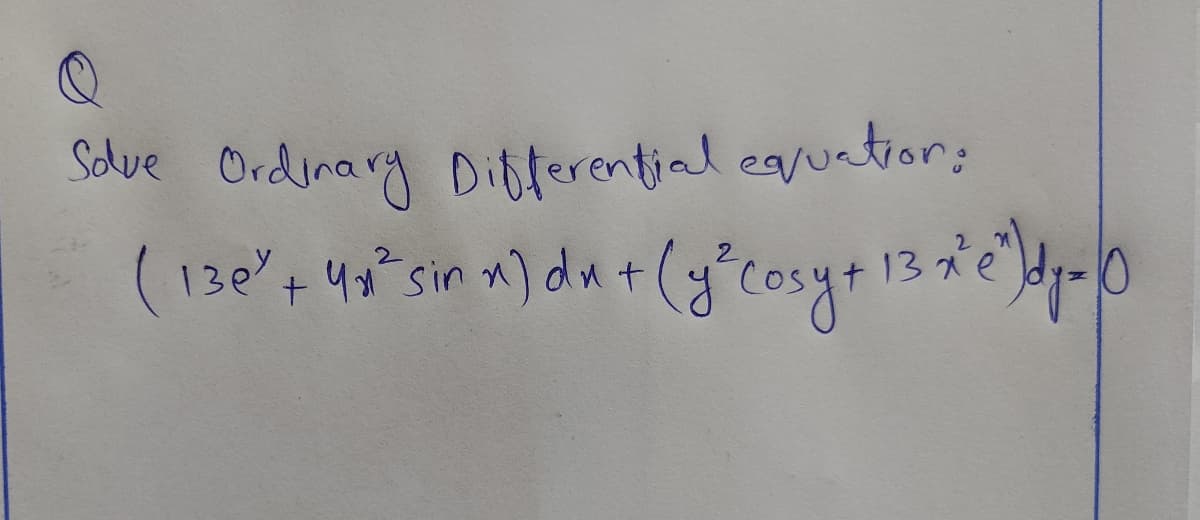 Q
Solve Ordinary Differential equation:
(13e^y + 4x² sin x) dx + (y² cosy + 13 x² e^x) dy = 0